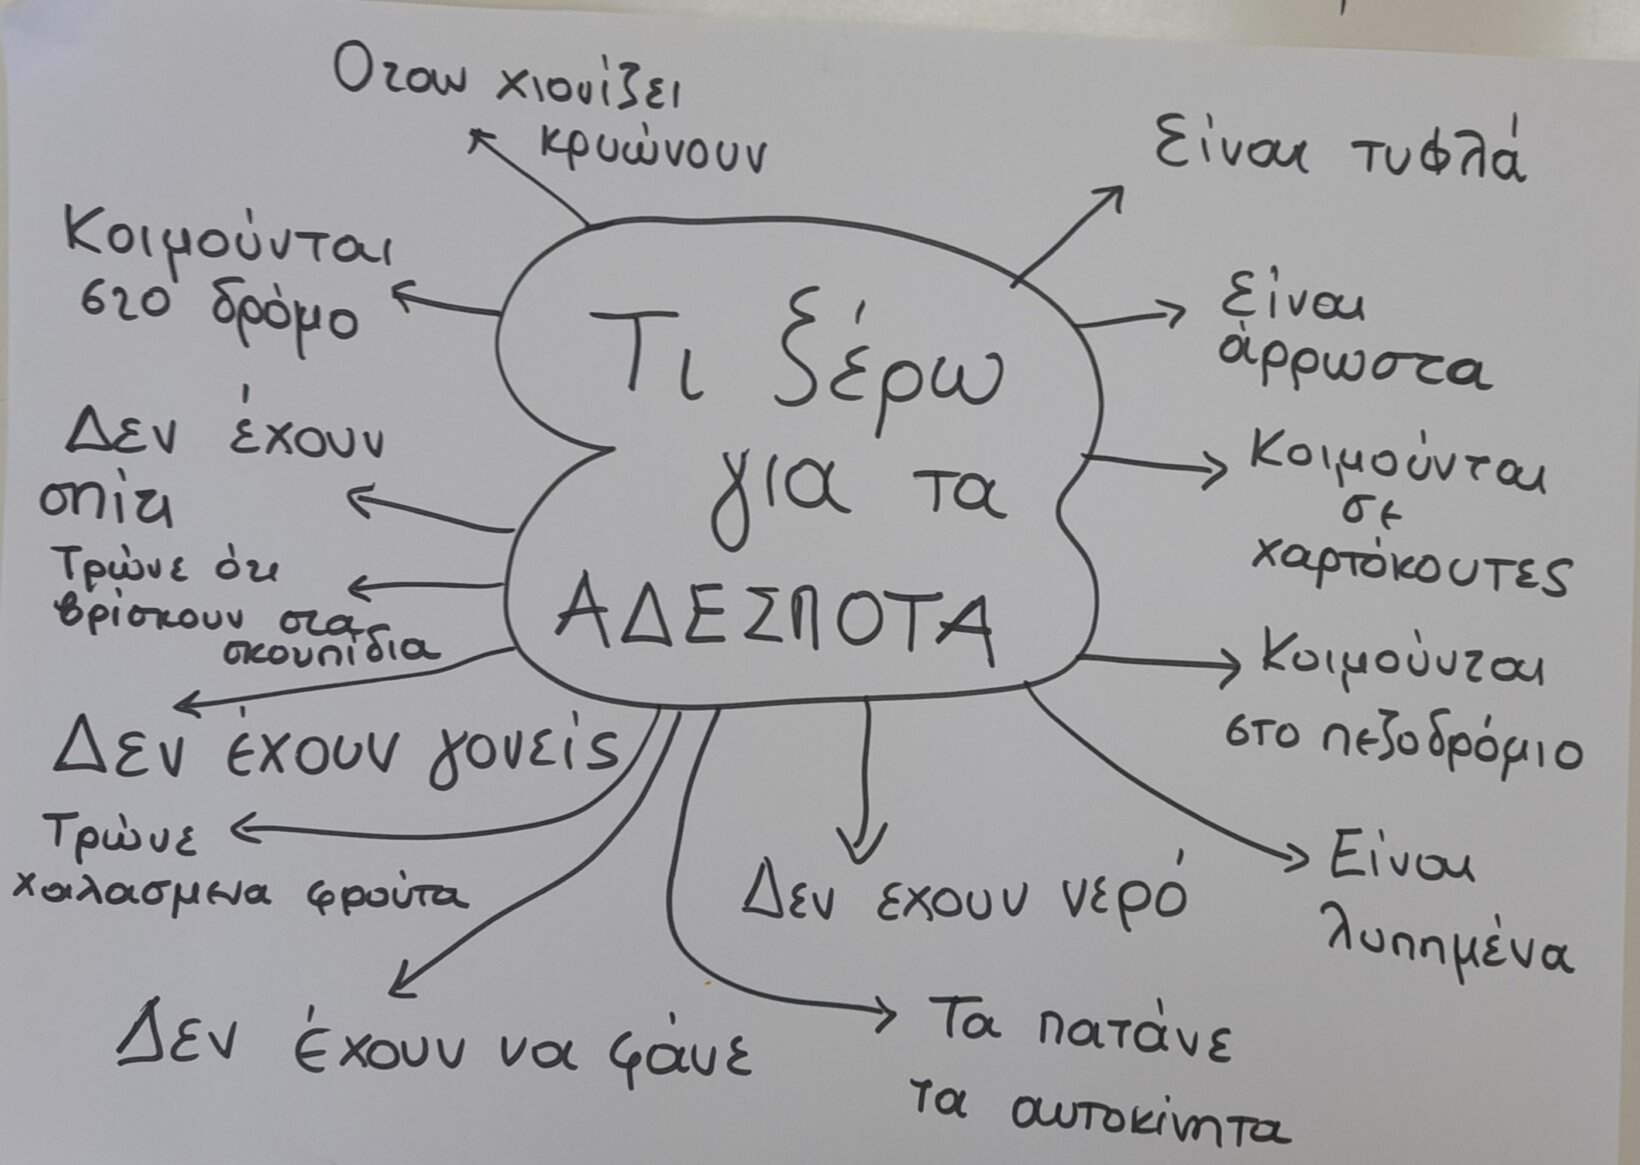 Οταν χιονίζει
κρυώνουν
Είναι τυφλά
Κοιμούνται
στο δρόμο
Είναι
άρρωστα
Τι ξέρω
για τα
ΑΔΕΣΠΟΤΑ
Δεν έχουν
σπίτι
Κοιμούνται
σε
χαρτόκουτες
Τρώνε ότι
βρίσκουν στα
σκουπίδια
Κοιμούνται
στο πεζοδρόμιο
Δεν έχουν γονείς
Τρώνε
χαλασμενα φρούτα
Δεν εχουν νερό
Είναι
λυπημένα
Δεν έχουν να φάνε
Τα πατάνε
τα αυτοκίνητα